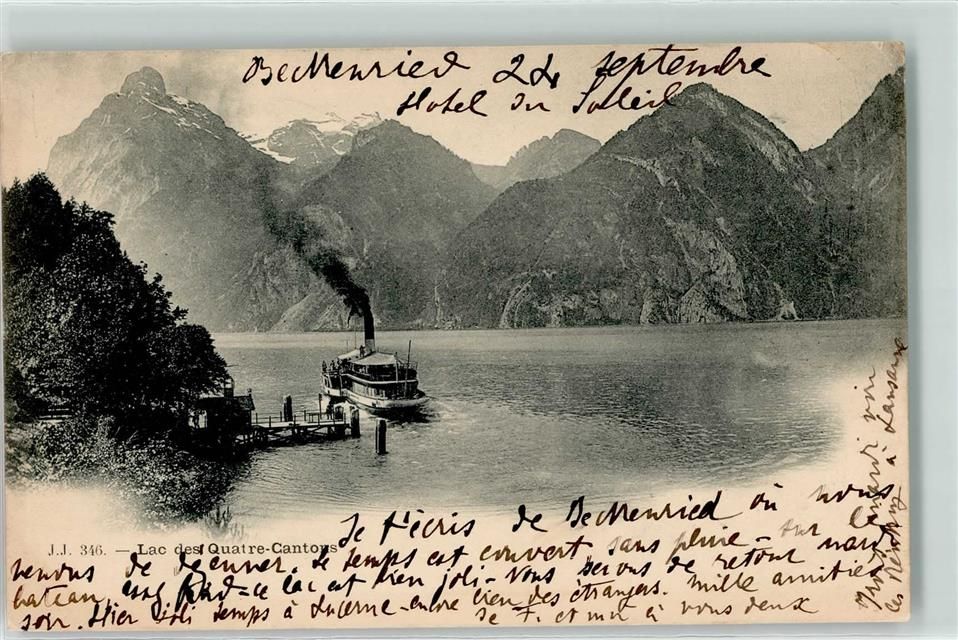 Beckenried 24 septembre
Hotel du Soleil
J.J. 346. — Lac des Quatre-Cantons
Je t'écris de Beckenried où nous
venons de déjeuner. Le temps est couvert, sans pluie - sur le
bateau, le lac est bien joli - Nous serons de retour mardi
soir. Hier joli temps à Lucerne - encore bien des étrangers. Mille amitiés
de F. et moi à vous deux
voir
les à Lausanne